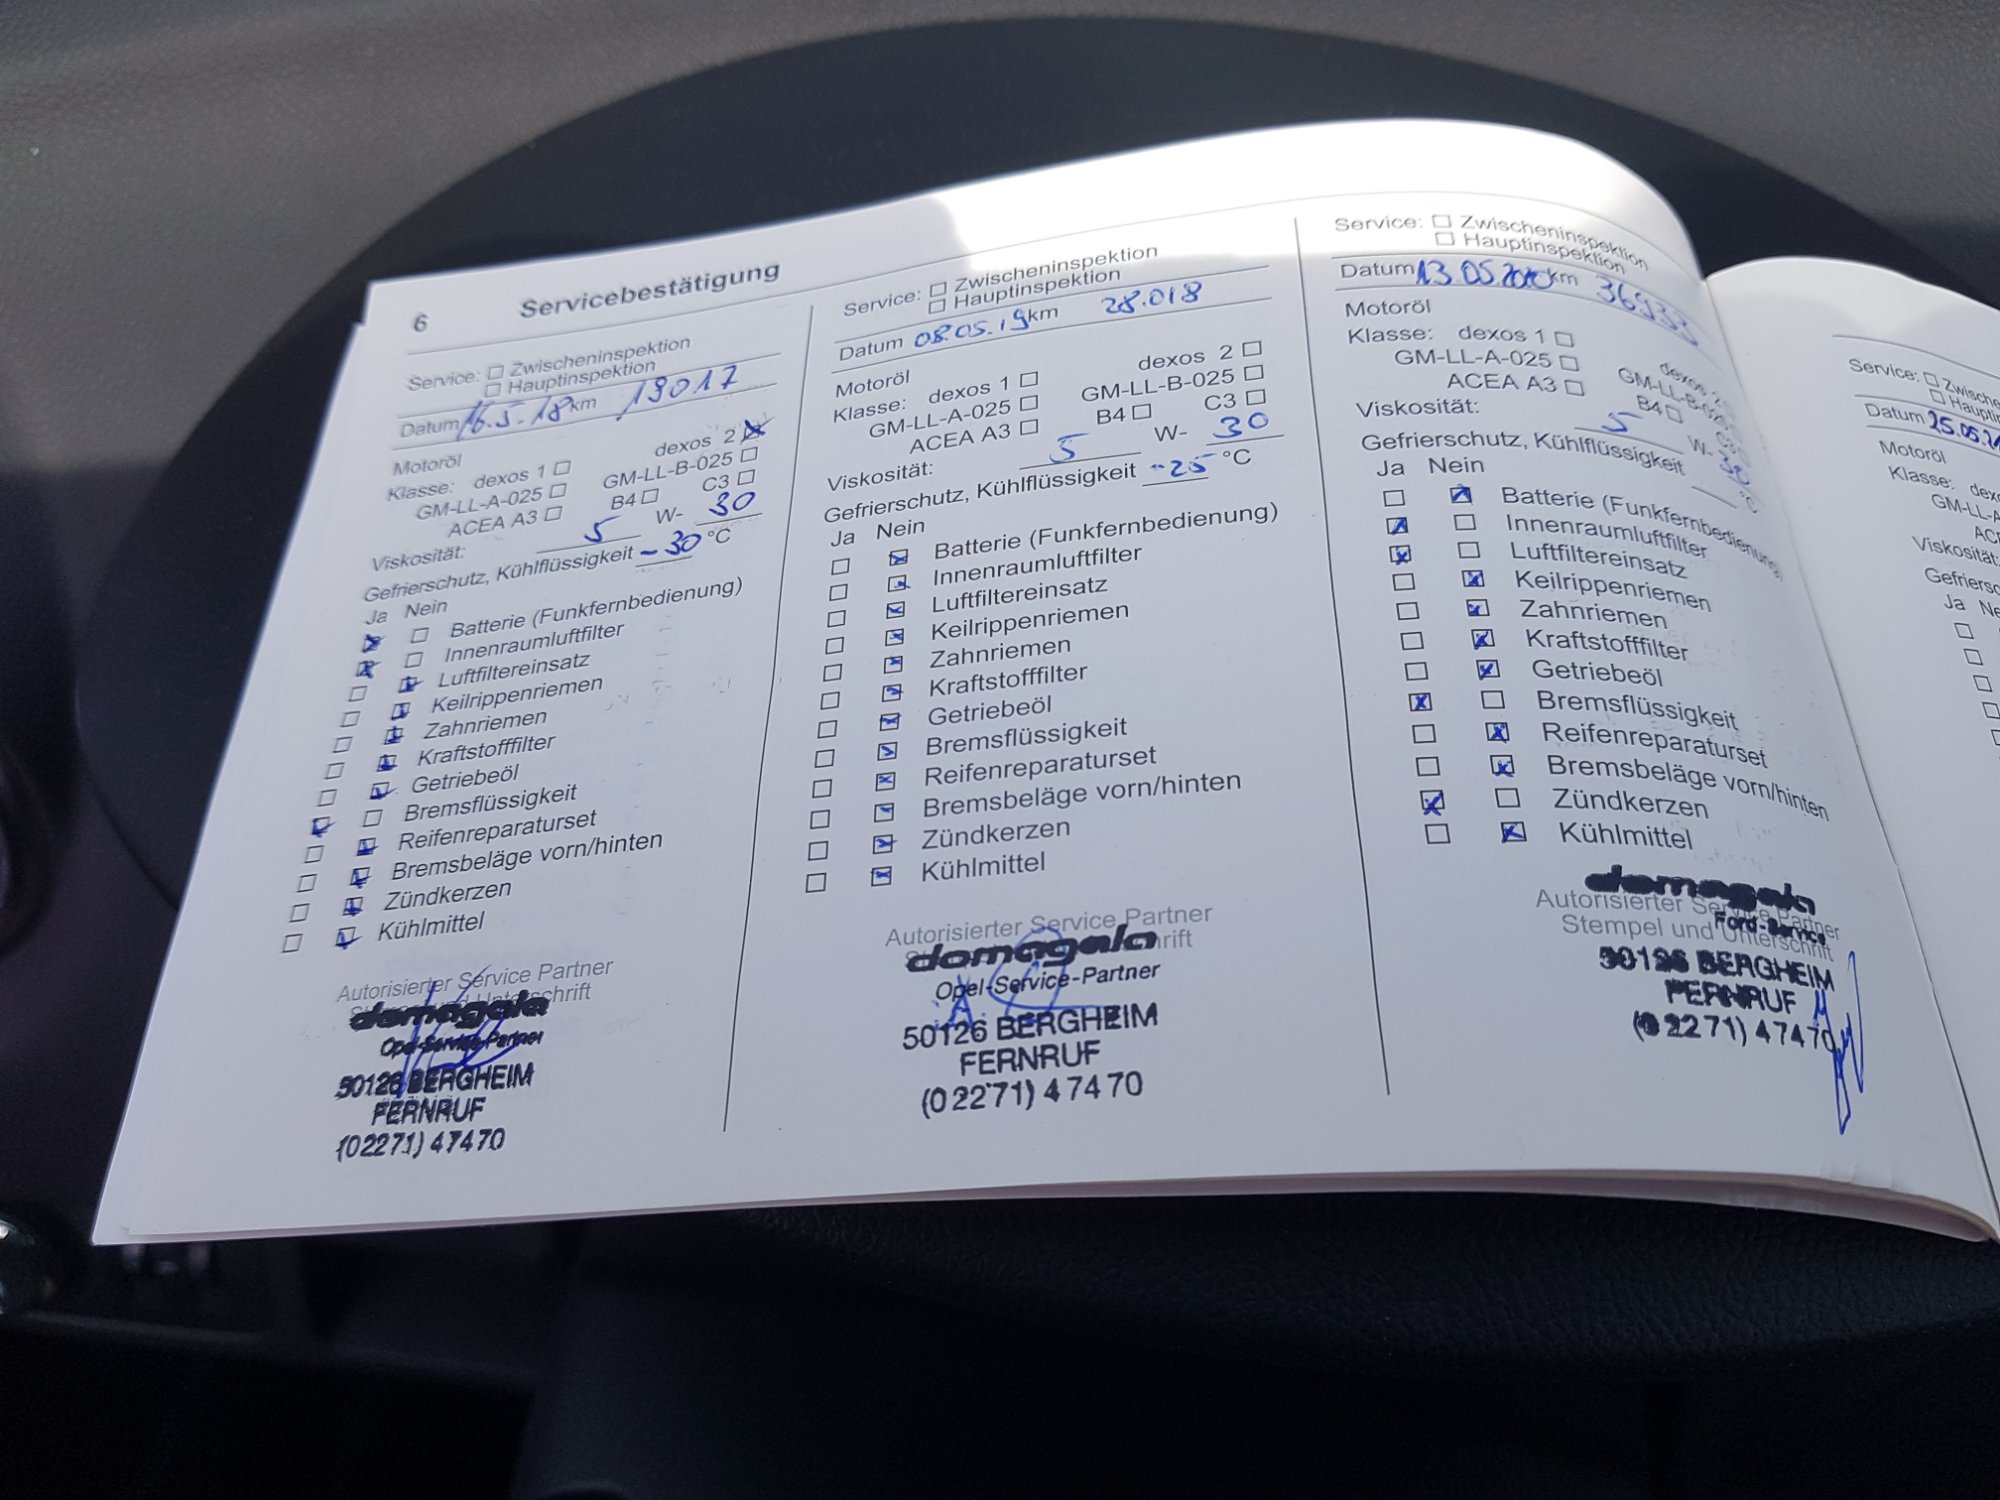 6 Servicebestätigung
Service: ☐ Zwischeninspektion
☐ Hauptinspektion
Datum 16.5.18 km 19017
Motoröl
Klasse: dexos 1 ☐ dexos 2 ☒
GM-LL-A-025 ☐ GM-LL-B-025 ☐
ACEA A3 ☐ B4 ☐ C3 ☐
Viskosität: 5 W- 30
Gefrierschutz, Kühlflüssigkeit -30 °C
Ja Nein
☒ ☐ Batterie (Funkfernbedienung)
☒ ☐ Innenraumluftfilter
☐ ☒ Luftfiltereinsatz
☐ ☒ Keilrippenriemen
☐ ☒ Zahnriemen
☐ ☒ Kraftstofffilter
☐ ☒ Getriebeöl
☒ ☐ Bremsflüssigkeit
☐ ☒ Reifenreparaturset
☐ ☒ Bremsbeläge vorn/hinten
☐ ☒ Zündkerzen
☐ ☒ Kühlmittel
Autorisierter Service Partner
domagala
Opel-Service-Partner
50126 BERGHEIM
FERNRUF
(02271) 47470
Service: ☐ Zwischeninspektion
☐ Hauptinspektion
Datum 08.05.19 km 28.018
Motoröl
Klasse: dexos 1 ☐ dexos 2 ☐
GM-LL-A-025 ☐ GM-LL-B-025 ☐
ACEA A3 ☐ B4 ☐ C3 ☐
Viskosität: 5 W- 30
Gefrierschutz, Kühlflüssigkeit -25 °C
Ja Nein
☐ ☒ Batterie (Funkfernbedienung)
☐ ☒ Innenraumluftfilter
☐ ☒ Luftfiltereinsatz
☐ ☒ Keilrippenriemen
☐ ☒ Zahnriemen
☐ ☒ Kraftstofffilter
☐ ☒ Getriebeöl
☐ ☒ Bremsflüssigkeit
☐ ☒ Reifenreparaturset
☐ ☒ Bremsbeläge vorn/hinten
☐ ☒ Zündkerzen
☐ ☒ Kühlmittel
Autorisierter Service Partner
domagala
Opel-Service-Partner
50126 BERGHEIM
FERNRUF
(02271) 47470
Service: ☐ Zwischeninspektion
☐ Hauptinspektion
Datum 13.05.2020 km 36933
Motoröl
Klasse: dexos 1 ☐ dexos
GM-LL-A-025 ☐ GM-LL-B-025
ACEA A3 ☐ B4 ☐
Viskosität: 5 W- 30
Gefrierschutz, Kühlflüssigkeit °C
Ja Nein
☐ ☒ Batterie (Funkfernbedienung)
☒ ☐ Innenraumluftfilter
☒ ☐ Luftfiltereinsatz
☐ ☒ Keilrippenriemen
☐ ☒ Zahnriemen
☐ ☒ Kraftstofffilter
☐ ☒ Getriebeöl
☒ ☐ Bremsflüssigkeit
☐ ☒ Reifenreparaturset
☐ ☒ Bremsbeläge vorn/hinten
☒ ☐ Zündkerzen
☐ ☒ Kühlmittel
domagala
Autorisierter Service Partner
Ford-Service
Stempel und Unterschrift
50126 BERGHEIM
FERNRUF
(02271) 47470
Service: ☐
☐
Datum 25.05.
Motoröl
Klasse:
Viskosität:
Ja